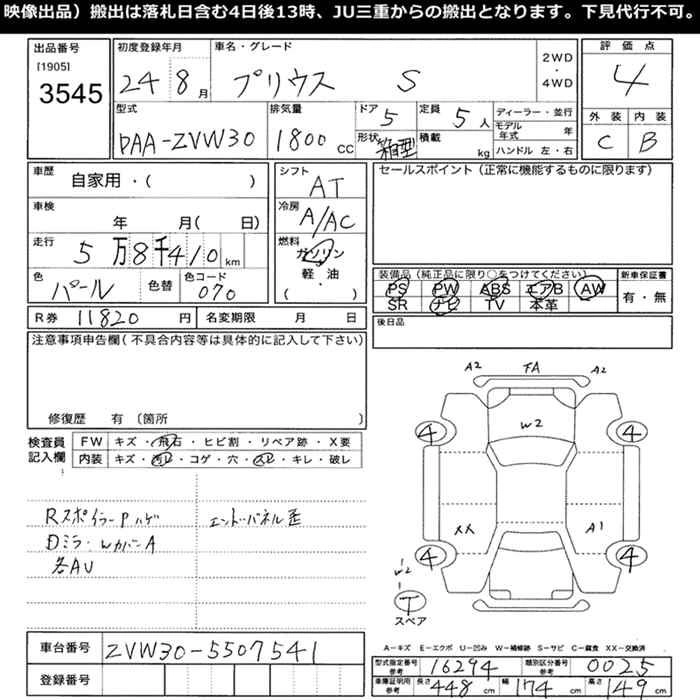 映像出品）搬出は落札日含む4日後13時、JU三重からの搬出となります。下見代行不可。
出品番号
[1905]
3545
初度登録年月
24 8 月
車名・グレード
プリウス S
2WD
・
4WD
評価点
4
型式
DAA-ZVW30
排気量
1800 CC
ドア
5
形状
箱型
定員
5 人
積載
kg
ディーラー・並行
モデル年式 年
ハンドル 左・右
外装 内装
C B
車歴
自家用・( )
シフト
AT
セールスポイント（正常に機能するものに限ります）
車検
年 月( 日)
冷房
A/AC
走行
5万8千410 km
燃料
ガソリン
軽・油
( ・ )
色
パール
色替
色コード
070
装備品（純正品に限り○をつけてください）
PS PW ABS エアB AW
SR ナビ TV 本革
新車保証書
有・無
R券 11820 円
名変期限 月 日
後日品
注意事項申告欄（不具合内容等は具体的に記入して下さい）
修復歴 有 〔箇所 〕
検査員記入欄
FW キズ・飛石・ヒビ割・リペア跡・X要
内装 キズ・汚レ・コゲ・穴・スレ・キレ・破レ
Rスポイラー P ハゲ
Dミラー Wカバー A
各AU
エンドパネル歪
A2 FA A2
W2
4 4
XX A1
4 4
W2
T
スペア
A－キズ E－エクボ U－凹み W－補修跡 S－サビ C－腐食 XX－交換済
車台番号
ZVW30-5507541
登録番号
型式指定番号 参考 16294
類別区分番号 参考 0025
車庫証明用 参考 長さ 448 cm 幅 174 cm 高さ 149 cm